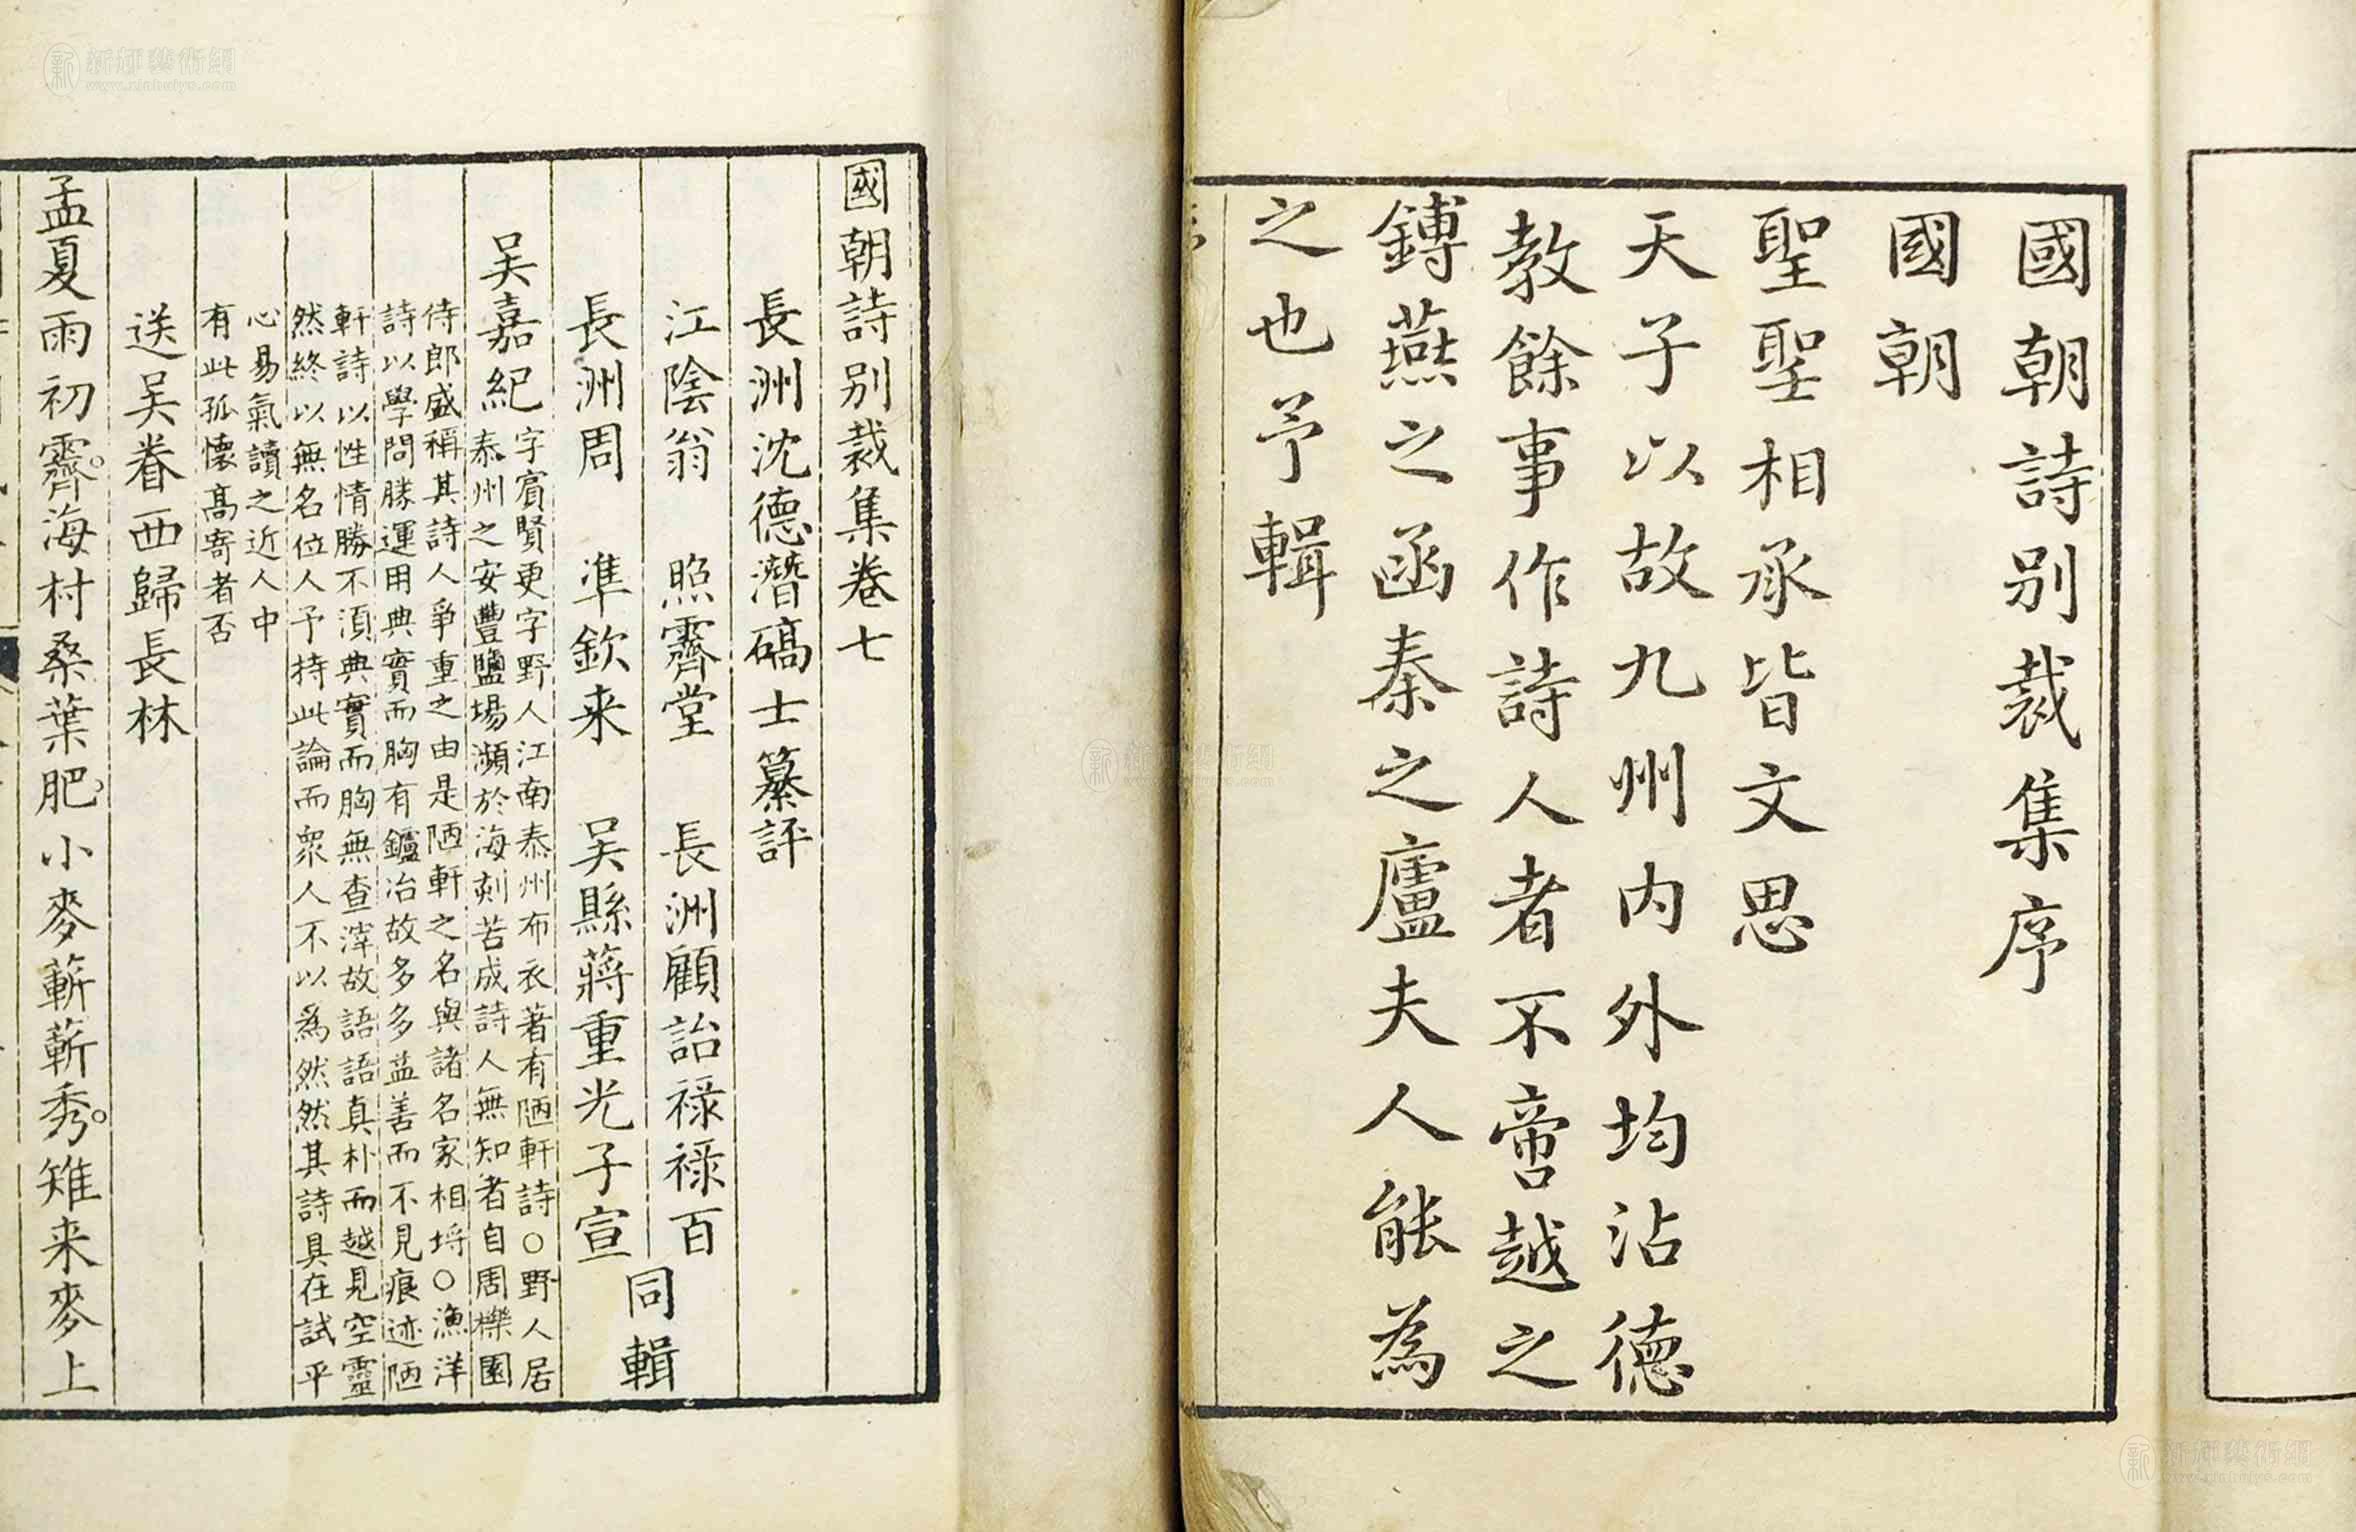 國朝詩別裁集序
國朝
聖聖相承皆文思
天子以故九州內外均沾德
教餘事作詩人者不啻越之
鎛燕之函秦之廬夫人能為
之也予輯
國朝詩別裁集卷七
長洲沈德潛碻士纂評
江陰翁 照霽堂 長洲顧詒祿祿百
長洲周 準欽来 吳縣蔣重光子宣
同輯
吳嘉紀
字賓賢更字野人江南泰州布衣著有陋軒詩○野人居
泰州之安豐鹽場瀕於海剡苦成詩人無知者自周櫟園
侍郎盛稱其詩人爭重之由是陋軒之名與諸名家相埒○漁洋
詩以學問勝運用典實而胸有鑪冶故多多益善而不見痕迹陋
軒詩以性情勝不湏典實而胸無查滓故語語真朴而越見空靈
然終以無名位人予持此論而衆人不以為然然其詩具在試平
心易氣讀之近人中
有此孤懷高寄者否
送吳眷西歸長林
孟夏雨初霽。海村桑葉肥、小麥蘄蘄秀。雉来麥上
新輝藝術網
www.xinhuiys.com
新輝藝術網
www.xinhuiys.com
新輝藝術網
www.xinhuiys.com